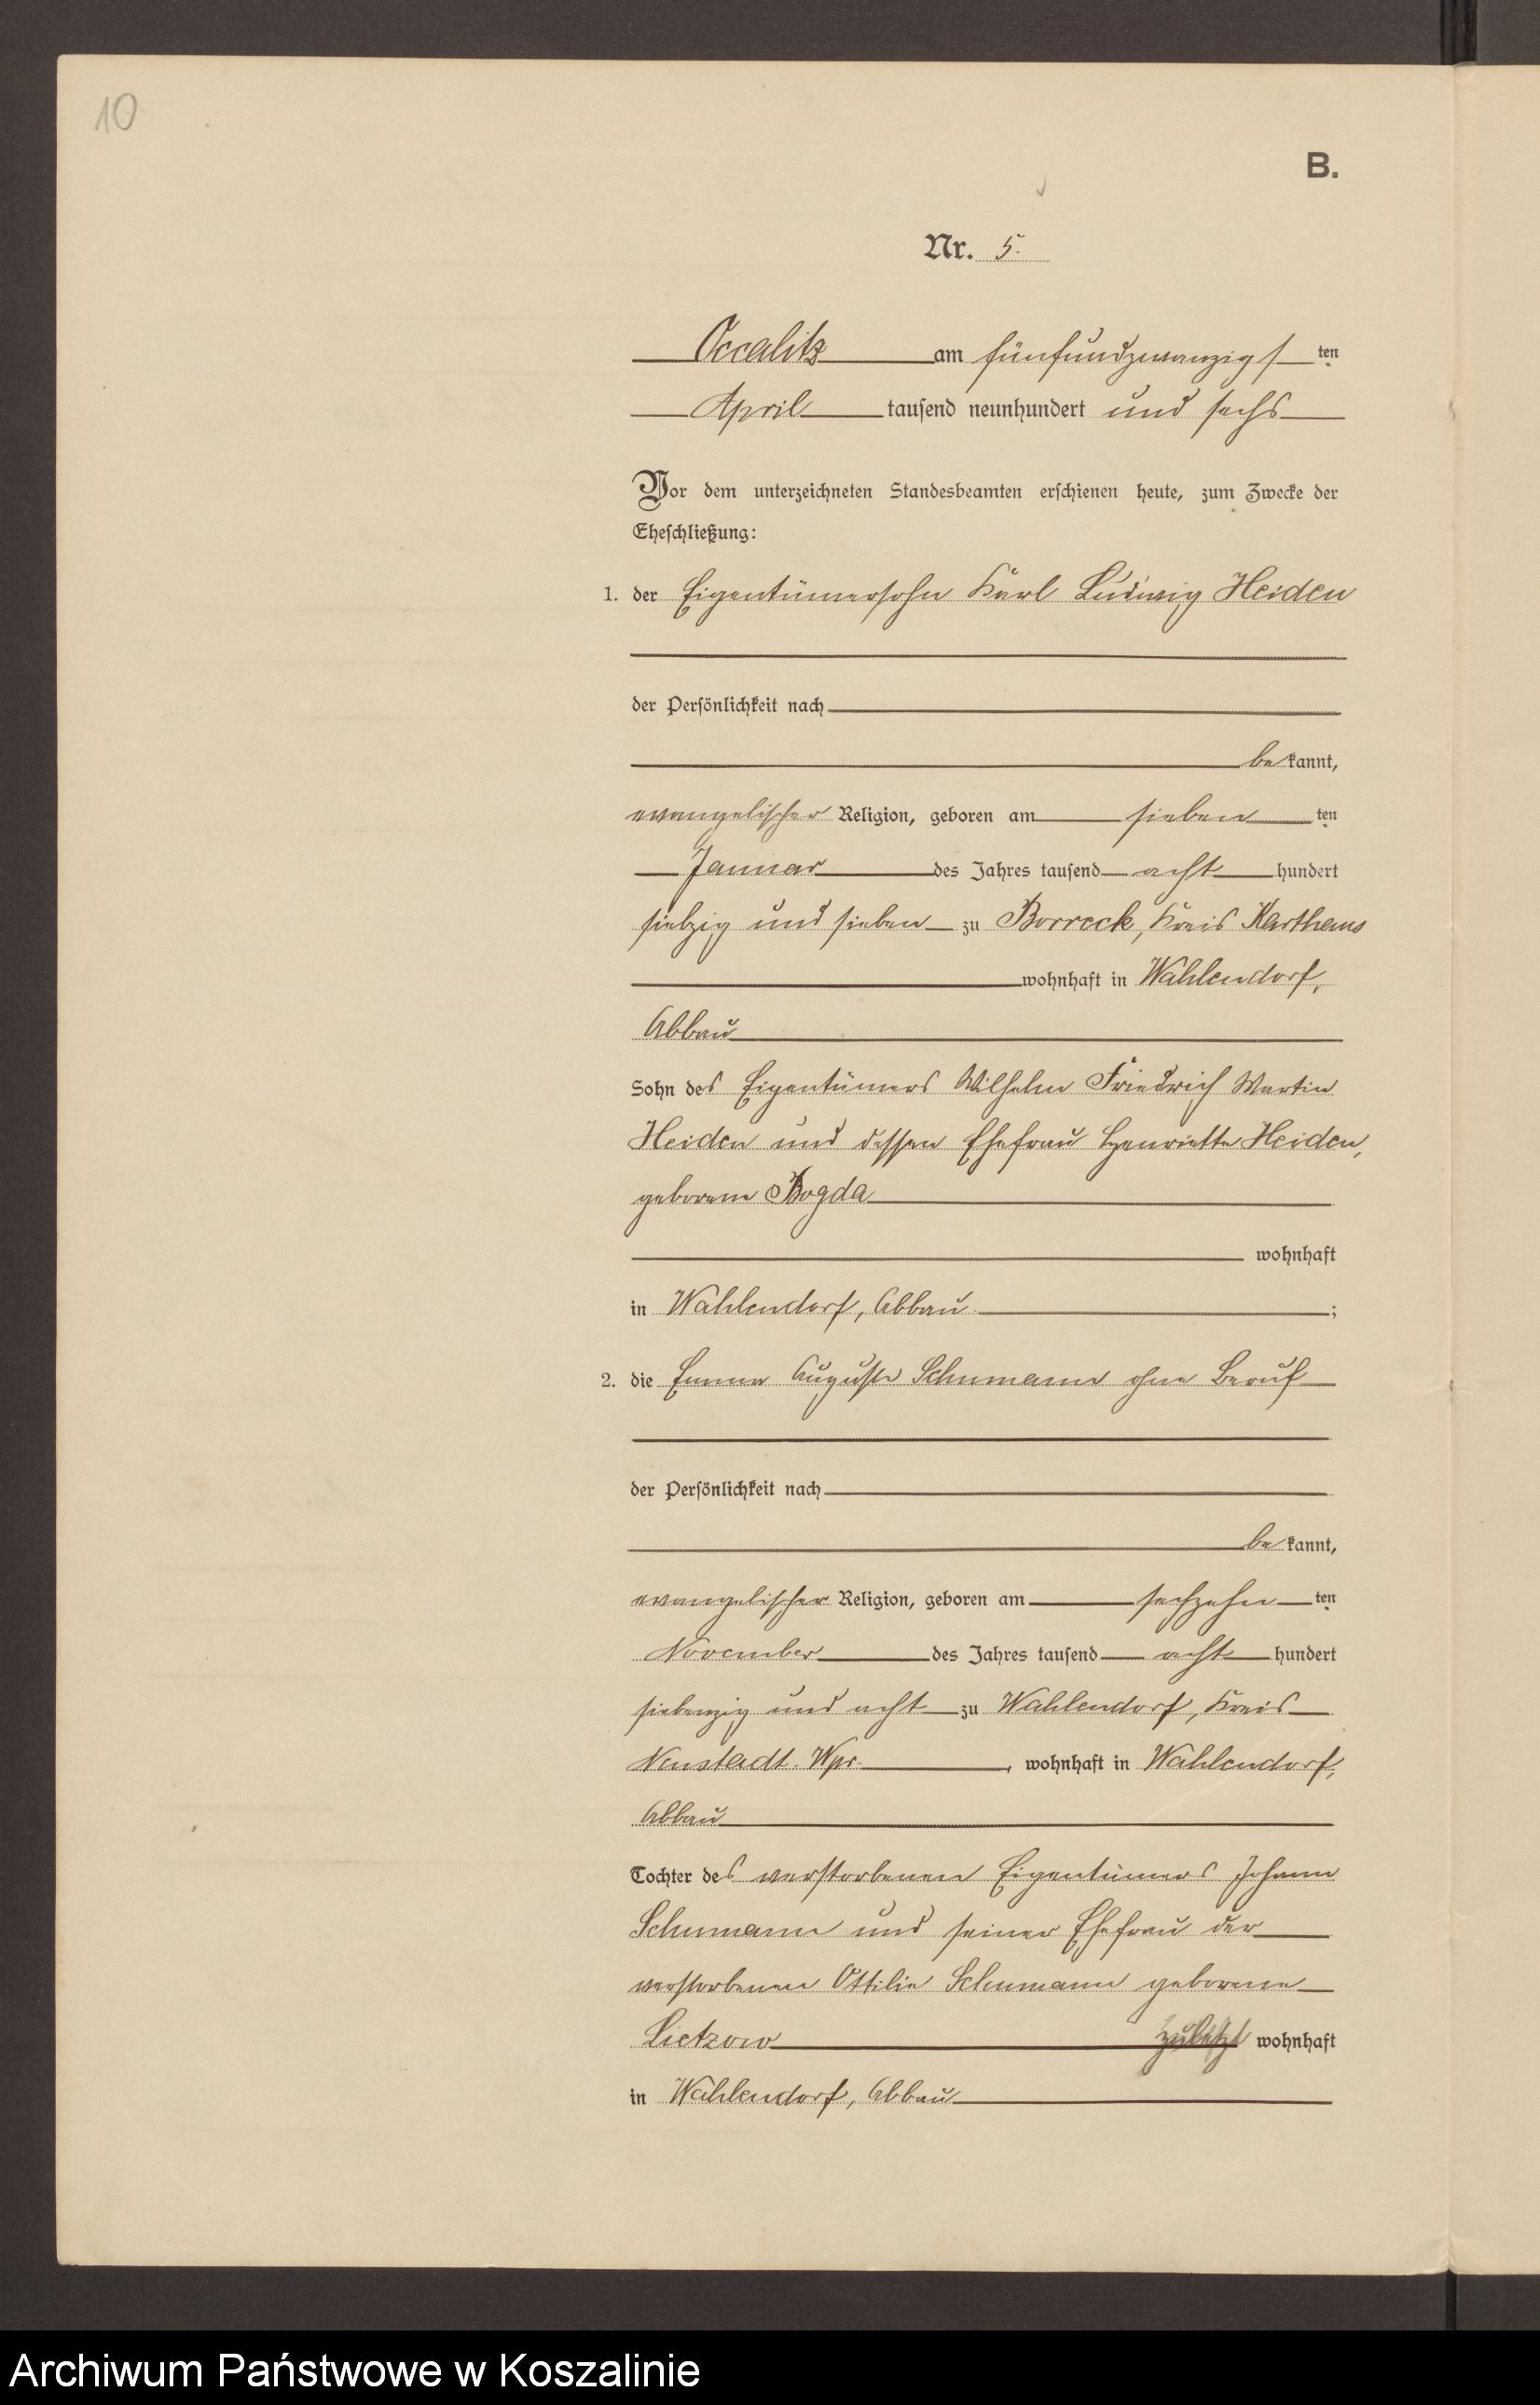 10
B.
Nr. 5.
Occalitz am fünfundzwanzigsten
April tausend neunhundert und sechs
Vor dem unterzeichneten Standesbeamten erschienen heute, zum Zwecke der
Eheschließung:
1. der Eigentümersohn Karl Ludwig Heiden
der Persönlichkeit nach
bekannt,
evangelischer Religion, geboren am siebenten
Januar des Jahres tausend acht hundert
siebzig und sieben zu Borreck, Kreis Karthaus
wohnhaft in Wahlendorf,
Abbau
Sohn des Eigentümers Wilhelm Friedrich Martin
Heiden und dessen Ehefrau Henriette Heiden,
geborene Bogda
wohnhaft
in Wahlendorf, Abbau ;
2. die Emma Auguste Schumann ohne Beruf
der Persönlichkeit nach
bekannt,
evangelischer Religion, geboren am sechzehnten
November des Jahres tausend acht hundert
siebenzig und acht zu Wahlendorf, Kreis
Neustadt Wpr. , wohnhaft in Wahlendorf,
Abbau
Tochter des verstorbenen Eigentümers Johann
Schumann und seiner Ehefrau der
verstorbenen Ottilie Schumann geborene
Lietzow zuletzt wohnhaft
in Wahlendorf, Abbau
Archiwum Państwowe w Koszalinie